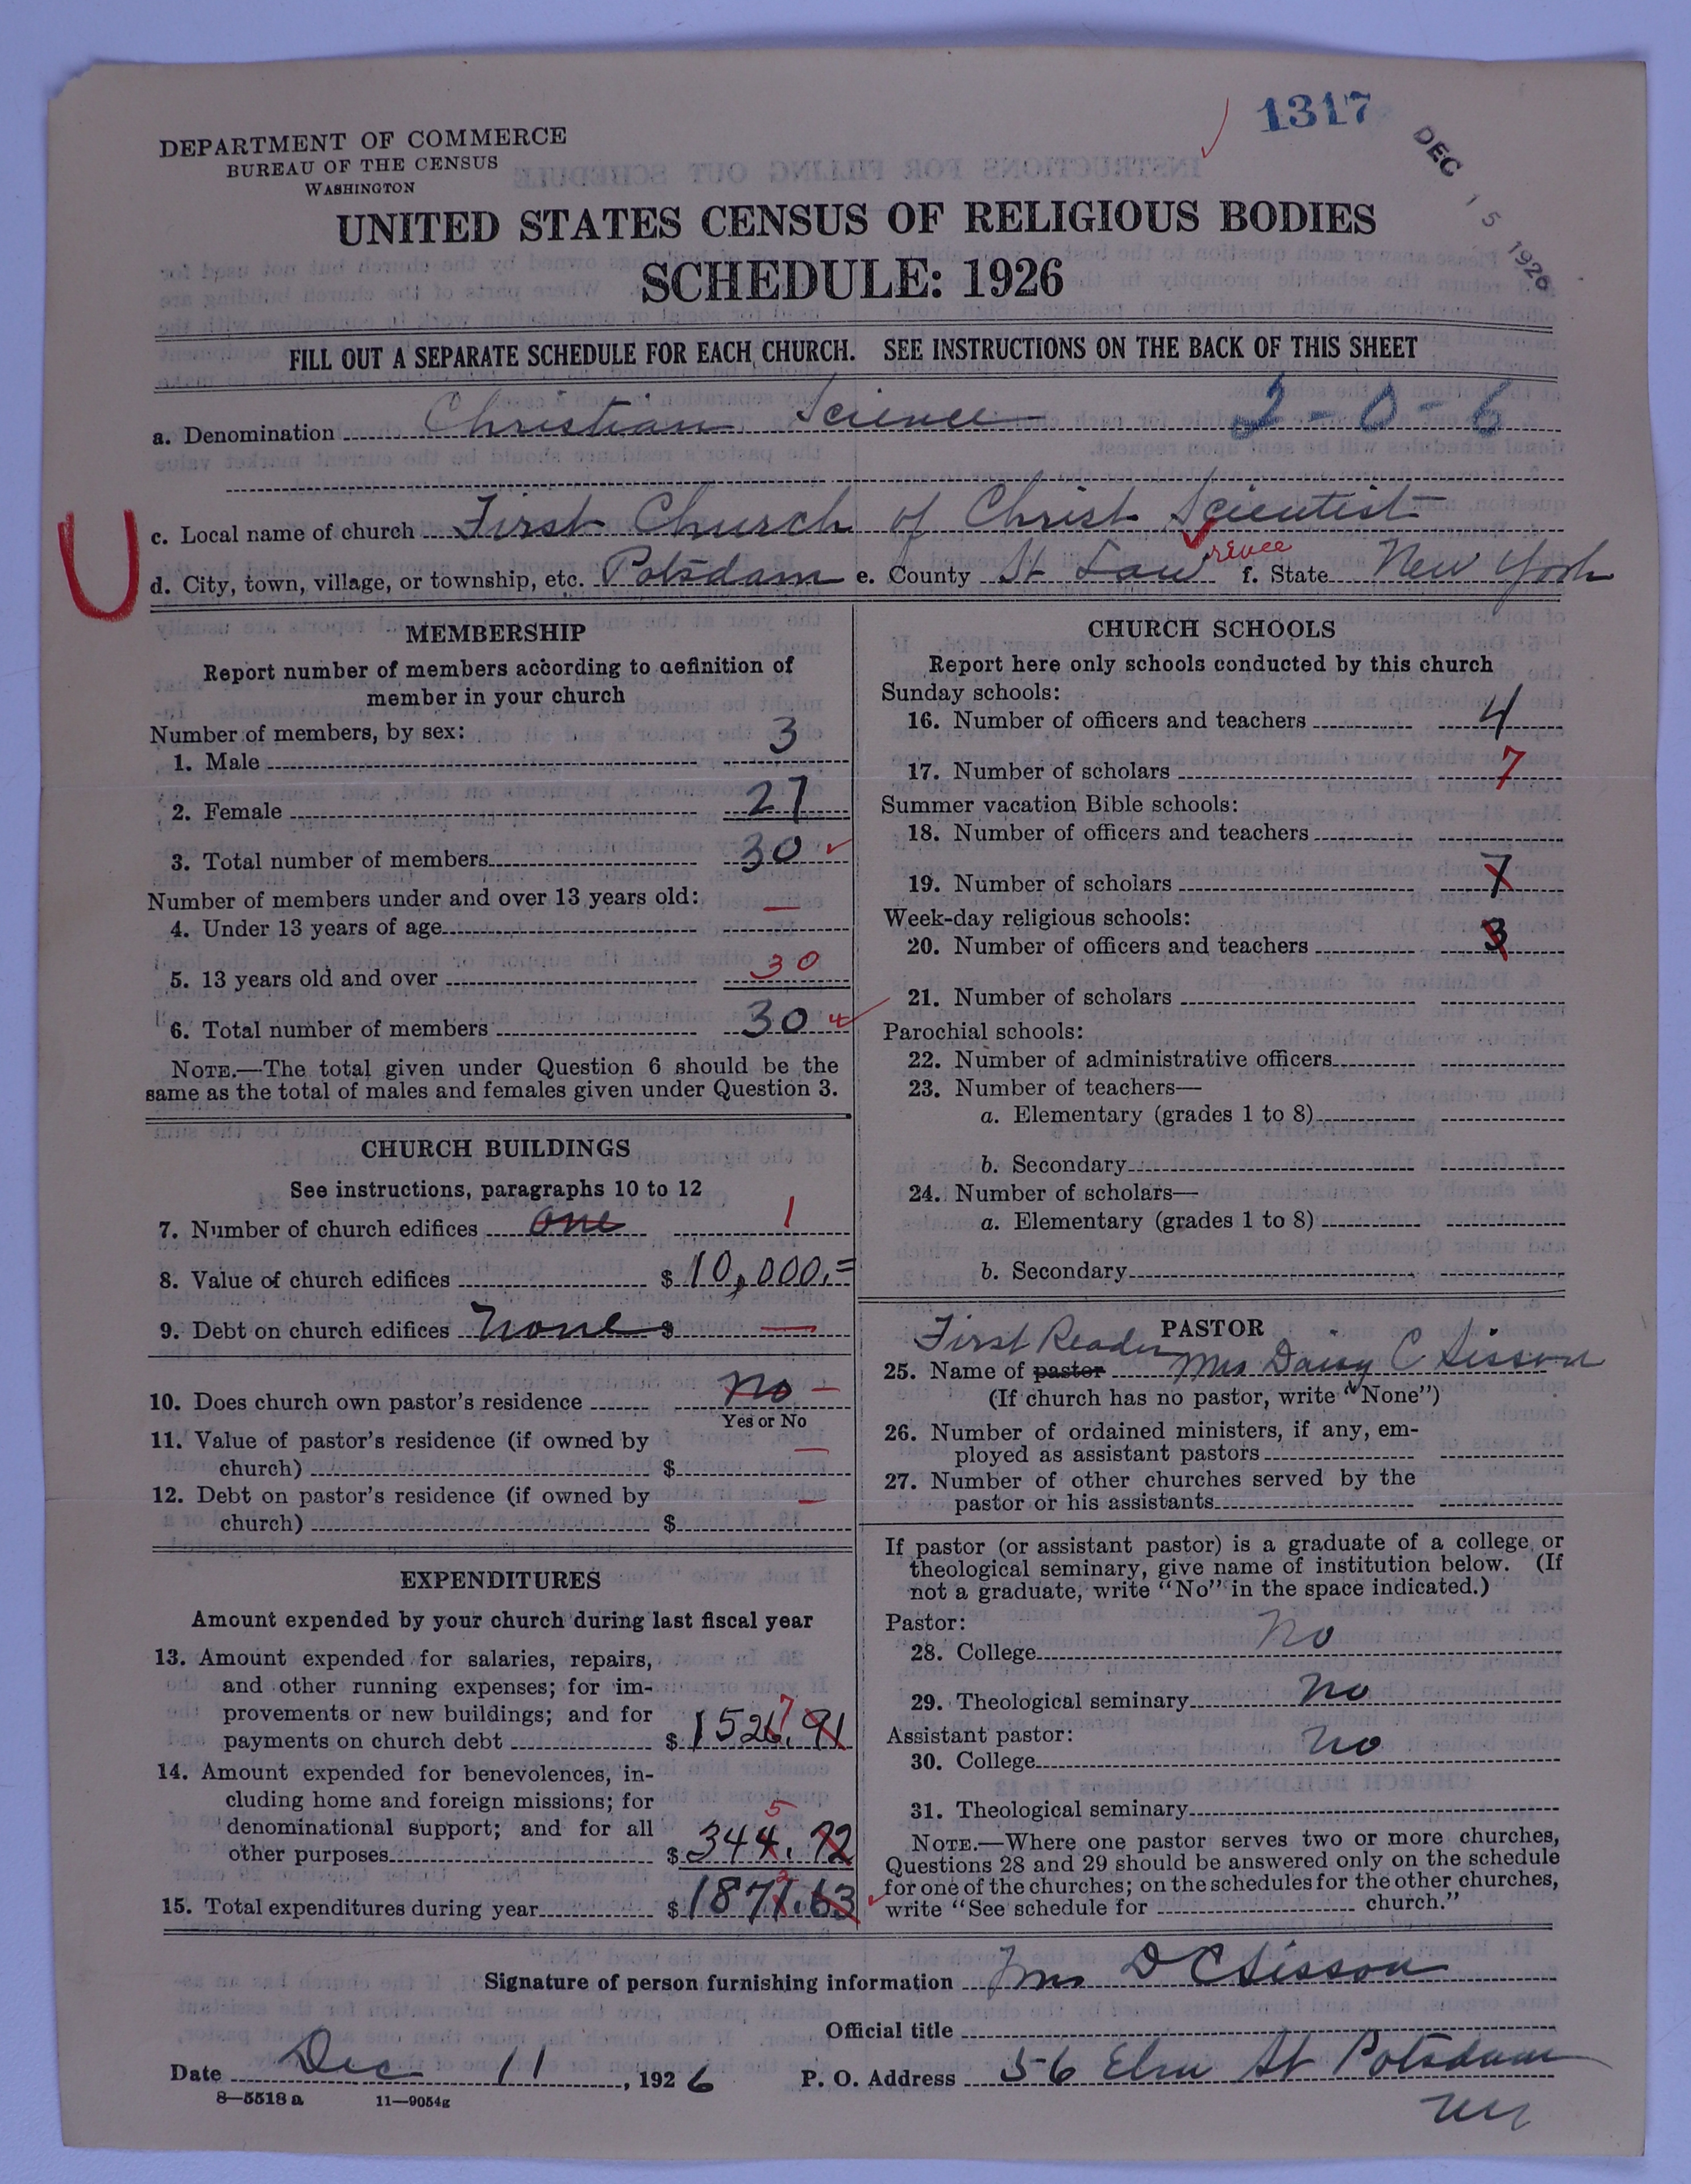 1317
DEC 15 1926
DEPARTMENT OF COMMERCE
BUREAU OF THE CENSUS
WASHINGTON
UNITED STATES CENSUS OF RELIGIOUS BODIES
SCHEDULE: 1926
FILL OUT A SEPARATE SCHEDULE FOR EACH CHURCH. SEE INSTRUCTIONS ON THE BACK OF THIS SHEET
a. Denomination Christian Science 2-0-6
c. Local name of church First Church of Christ Scientist
U
d. City, town, village, or township, etc. Potsdam e. County St Lawrence f. State New York
MEMBERSHIP
Report number of members according to definition of
member in your church
Number of members, by sex:
1. Male 3
2. Female 27
3. Total number of members 30
Number of members under and over 13 years old:
4. Under 13 years of age —
5. 13 years old and over 30
6. Total number of members 30
NOTE.—The total given under Question 6 should be the
same as the total of males and females given under Question 3.
CHURCH BUILDINGS
See instructions, paragraphs 10 to 12
7. Number of church edifices one 1
8. Value of church edifices $ 10,000.=
9. Debt on church edifices none $ —
10. Does church own pastor's residence no —
Yes or No
11. Value of pastor's residence (if owned by
church) $ —
12. Debt on pastor's residence (if owned by
church) $ —
EXPENDITURES
Amount expended by your church during last fiscal year
13. Amount expended for salaries, repairs,
and other running expenses; for im-
provements or new buildings; and for
7
payments on church debt $ 1526.91
14. Amount expended for benevolences, in-
cluding home and foreign missions; for
5
denominational support; and for all
other purposes $ 344.72
2
15. Total expenditures during year $ 1871.63
CHURCH SCHOOLS
Report here only schools conducted by this church
Sunday schools:
16. Number of officers and teachers 4
17. Number of scholars 7
Summer vacation Bible schools:
18. Number of officers and teachers
19. Number of scholars 7
Week-day religious schools:
20. Number of officers and teachers 3
21. Number of scholars
Parochial schools:
22. Number of administrative officers
23. Number of teachers—
a. Elementary (grades 1 to 8)
b. Secondary
24. Number of scholars—
a. Elementary (grades 1 to 8)
b. Secondary
PASTOR
First Reader
25. Name of pastor Mrs Daisy C Sisson
(If church has no pastor, write "None")
26. Number of ordained ministers, if any, em-
ployed as assistant pastors
27. Number of other churches served by the
pastor or his assistants
If pastor (or assistant pastor) is a graduate of a college or
theological seminary, give name of institution below. (If
not a graduate, write "No" in the space indicated.)
Pastor:
28. College no
29. Theological seminary no
Assistant pastor:
30. College no
31. Theological seminary
NOTE.—Where one pastor serves two or more churches,
Questions 28 and 29 should be answered only on the schedule
for one of the churches; on the schedules for the other churches,
write "See schedule for church."
Signature of person furnishing information Mrs D C Sisson
Official title
Date Dec 11, 1926 P. O. Address 56 Elm St Potsdam
NY
8—5518 a 11—9054g